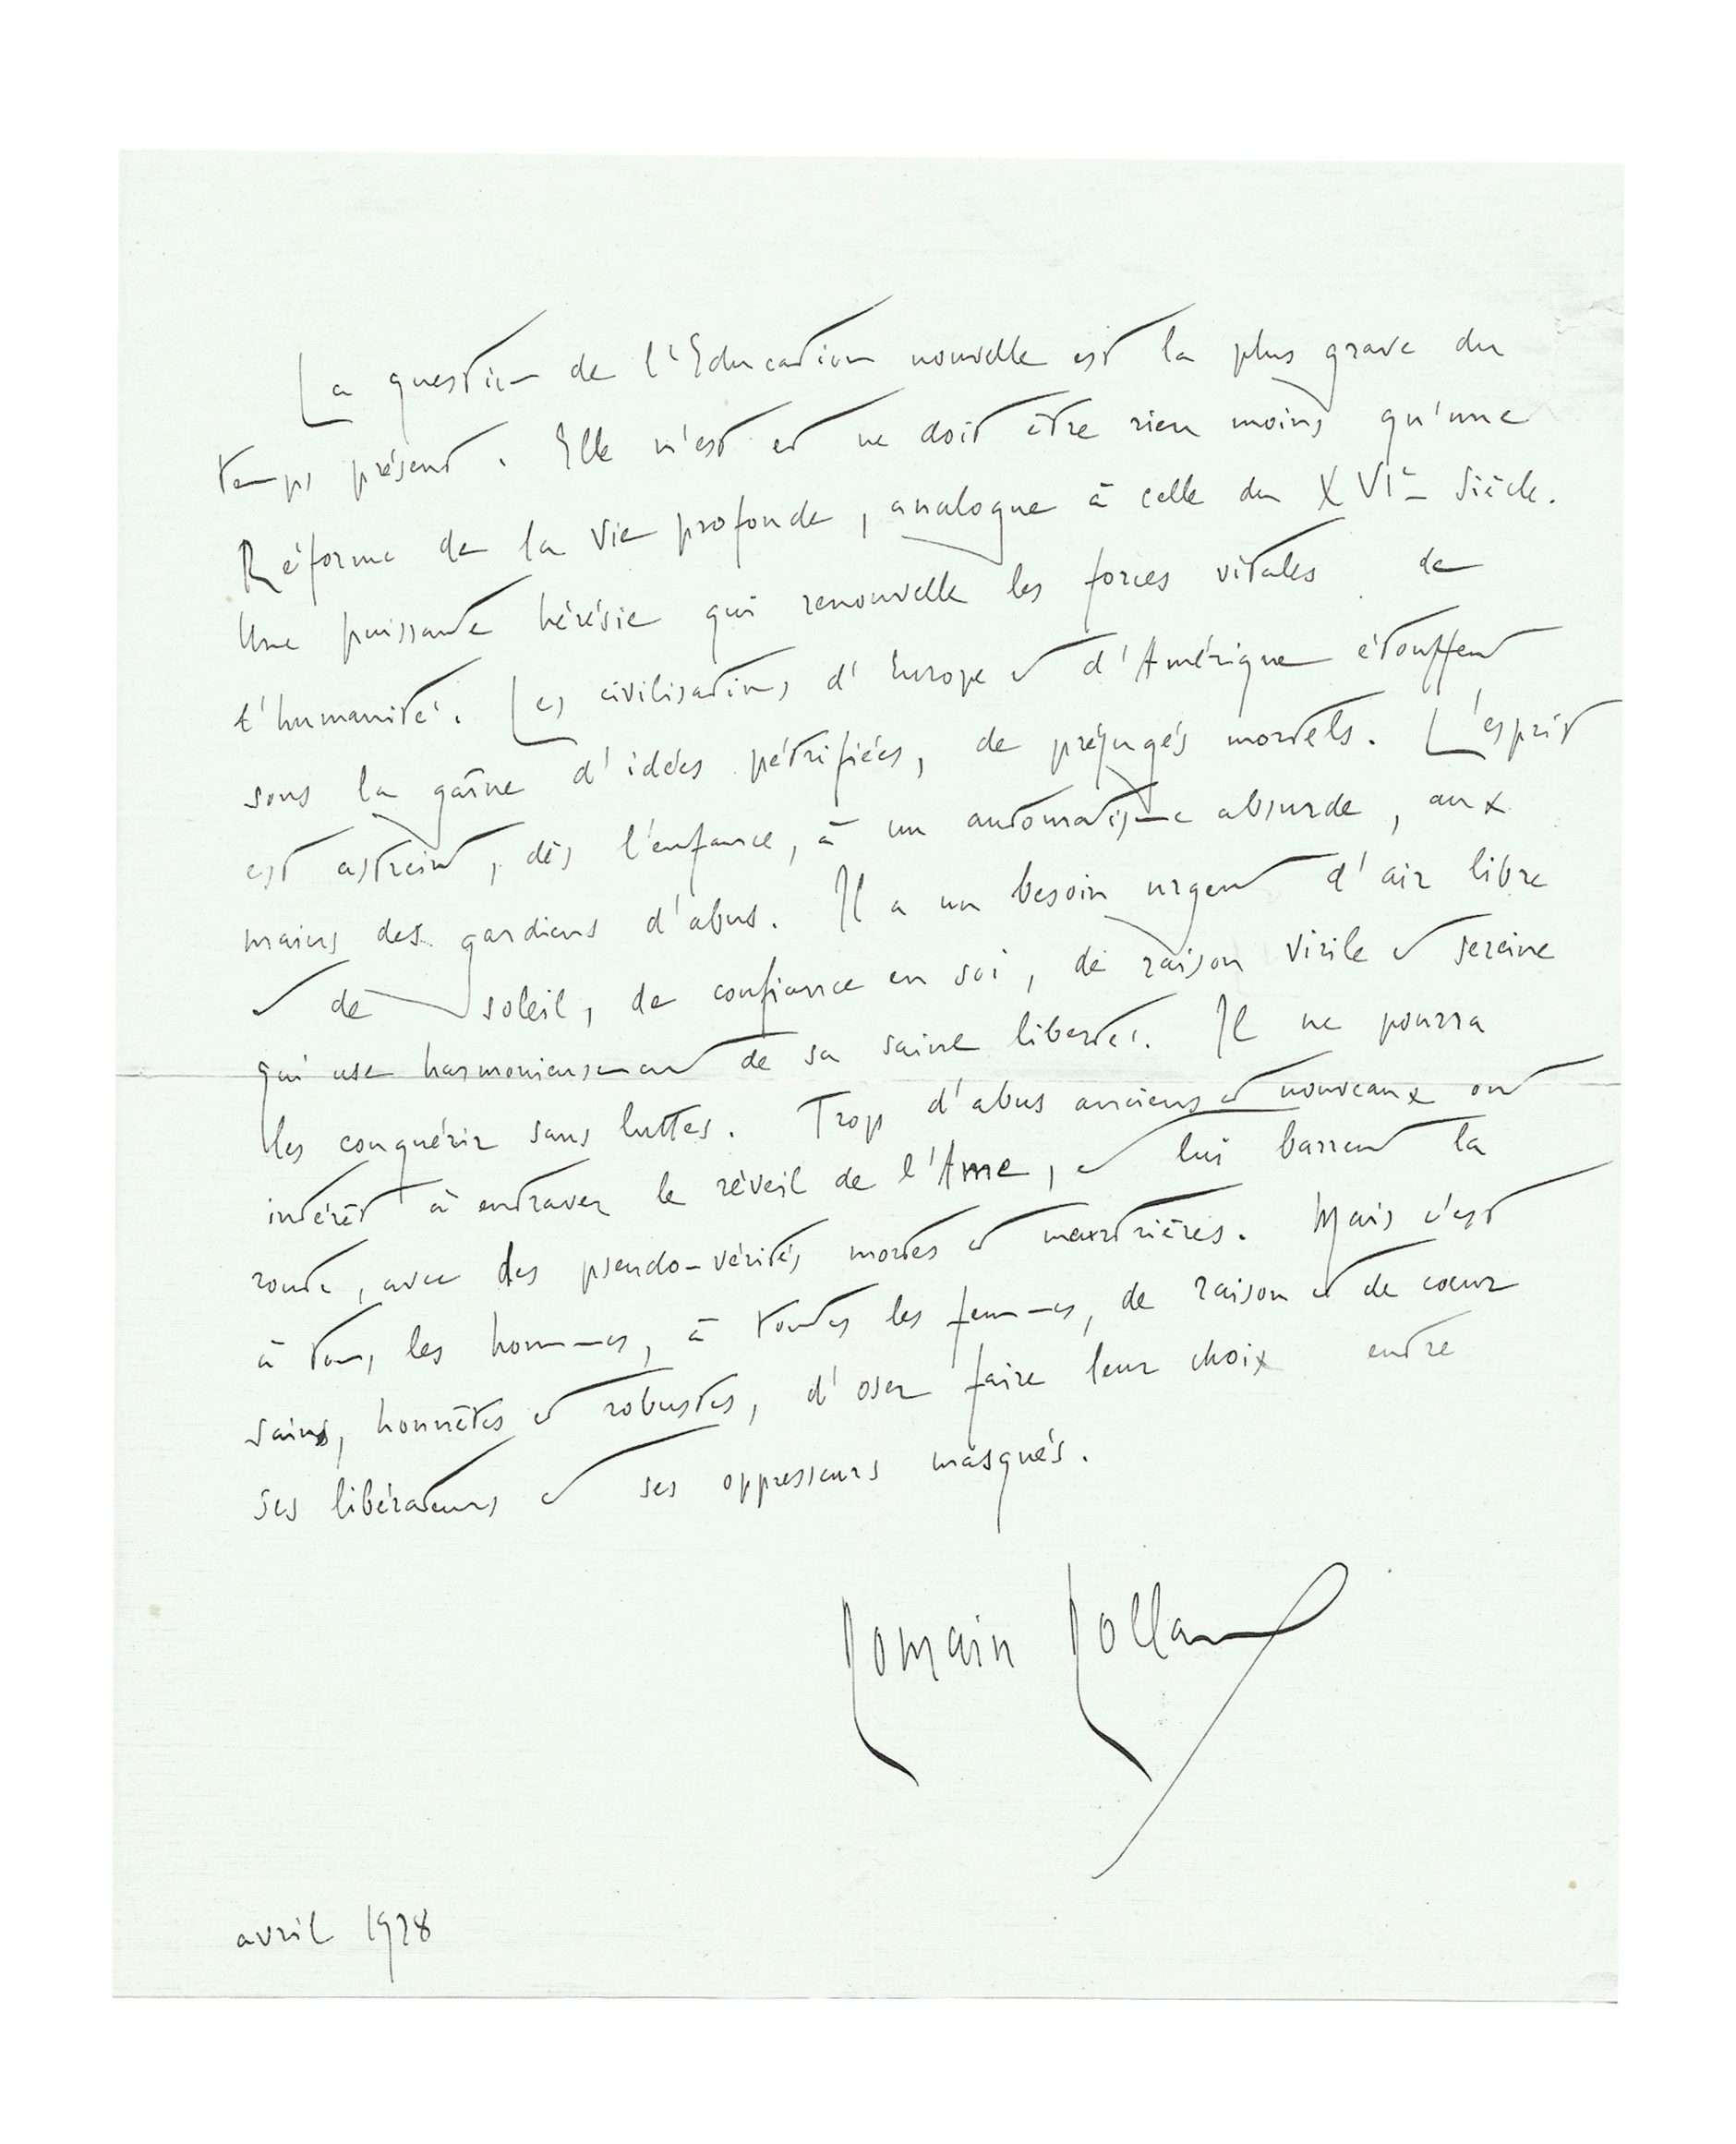 La question de l'Education nouvelle est la plus grave du
temps présent. Elle n'est et ne doit être rien moins qu'une
Réforme de la Vie profonde, analogue à celle du XVIe Siècle.
Une puissante hérésie qui renouvelle les forces vitales de
l'humanité. Les civilisations d'Europe et d'Amérique étouffent
sous la gaîne d'idées pétrifiées, de préjugés mortels. L'esprit
est astreint, dès l'enfance, à un automatisme absurde, aux
mains des gardiens d'abus. Il a un besoin urgent d'air libre
et de soleil, de confiance en soi, de raison virile et sereine
qui use harmonieusement de sa saine liberté. Il ne pourra
les conquérir sans luttes. Trop d'abus anciens et nouveaux ont
intérêt à entraver le réveil de l'Ame, et lui barrent la
route, avec des pseudo-vérités mortes et meurtrières. Mais c'est
à tous les hommes, à toutes les femmes, de raison et de cœur
sains, honnêtes et robustes, d'oser faire leur choix entre
ses libérateurs et ses oppresseurs masqués.
Romain Rolland
avril 1928